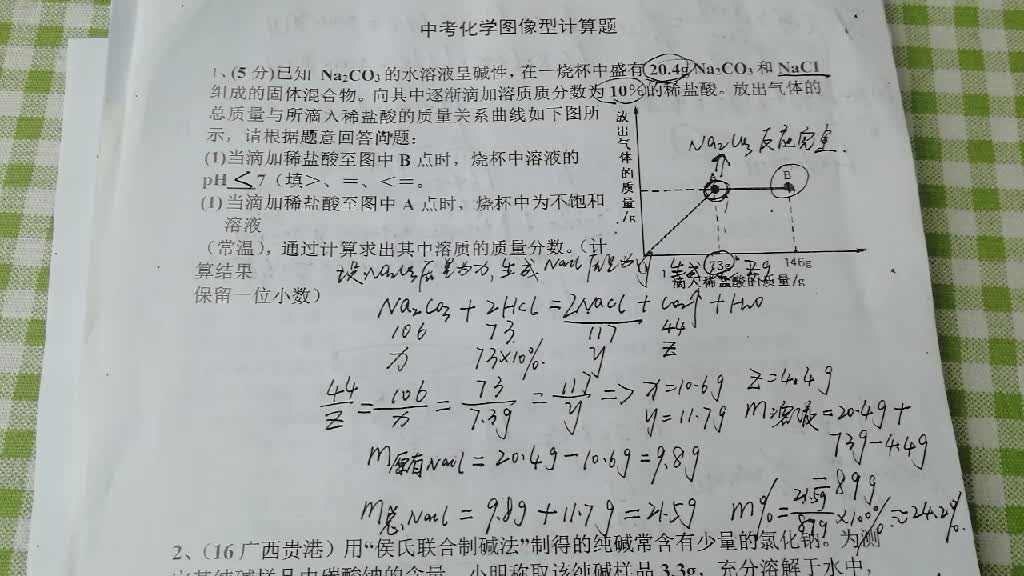 中考化学图像型计算题
1、(5分)已知 Na₂CO₃的水溶液呈碱性，在一烧杯中盛有20.4gNa₂CO₃和NaCl
组成的固体混合物。向其中逐渐滴加溶质质分数为10%的稀盐酸。放出气体的
总质量与所滴入稀盐酸的质量关系曲线如下图所
示，请根据题意回答问题：
(1)当滴加稀盐酸至图中B点时，烧杯中溶液的
pH < 7（填>、=、<=。
(1)当滴加稀盐酸至图中A点时，烧杯中为不饱和
溶液
(常温)，通过计算求出其中溶质的质量分数。(计
算结果
保留一位小数)
放出气体的质量/g
Na₂CO₃反应完全.
A
B
73g
146g
滴入稀盐酸的质量/g
设Na₂CO₃质量为x，生成NaCl质量为y，生成
Na₂CO₃ + 2HCl = 2NaCl + CO₂↑ + H₂O
106 73 117 44
x 73×10% y z
44/z = 106/x = 73/7.3g = 117/y => x=10.6g z=4.4g
y=11.7g m溶液=20.4g+
73g-4.4g
=89g
m原有NaCl = 20.4g-10.6g=9.8g
m总NaCl = 9.8g+11.7g=21.5g m%=21.5g/89g×100%≈24.2%.
2、（16广西贵港）用“侯氏联合制碱法”制得的纯碱常含有少量的氯化钠。为测
定某纯碱样品中碳酸钠的含量，小明称取该纯碱样品3.3g，充分溶解于水中，